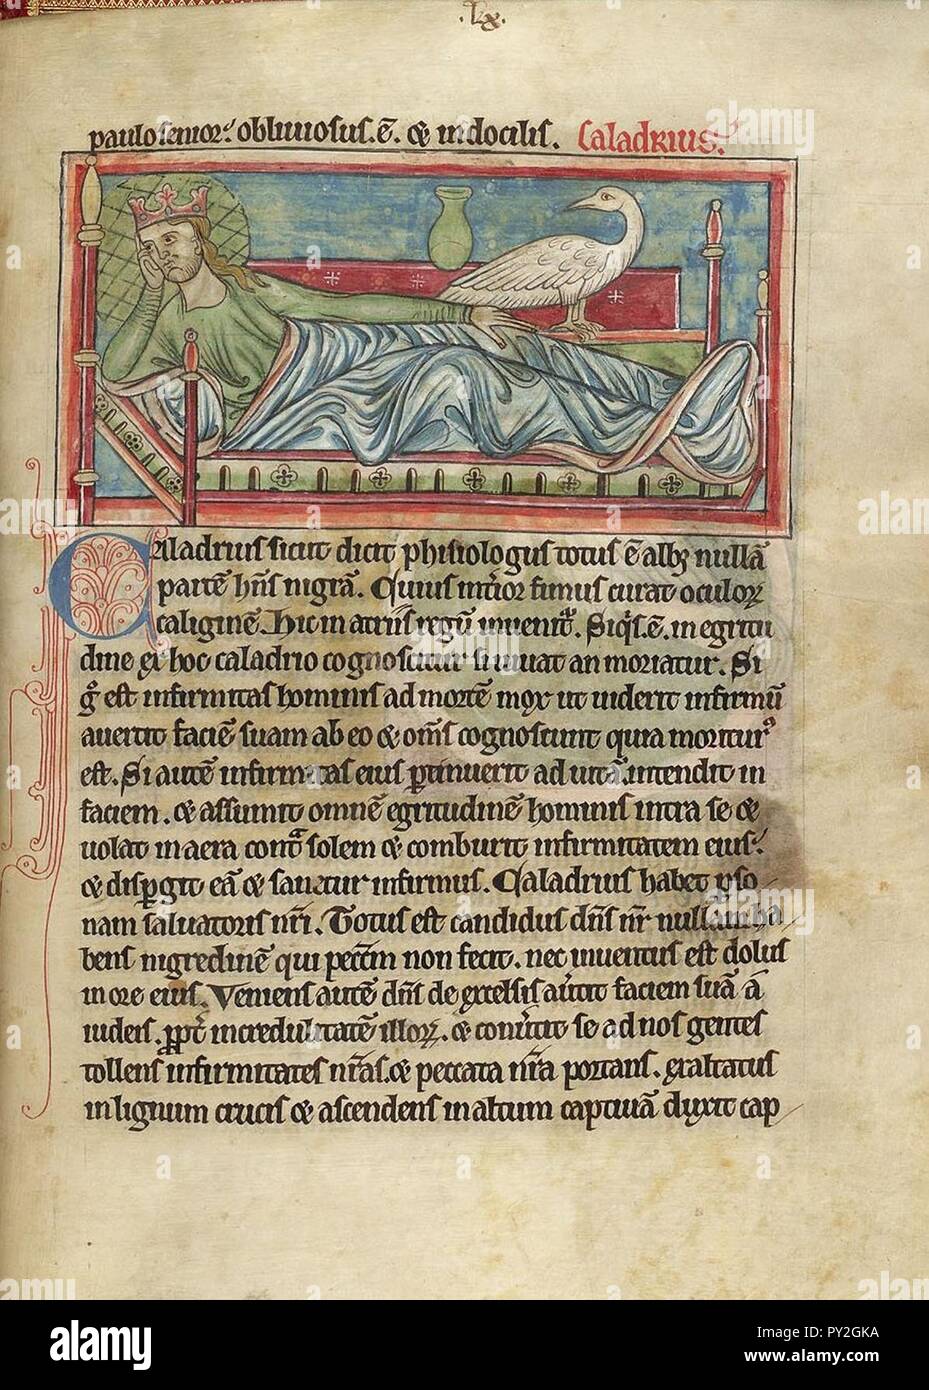 .Lx.
paulo senior. obliuiosus.ē. & indocilis. Caladrius.
Caladrius sicut dicit phisiologus totus ē albꝫ nullā
partē hn̄s nigrā. Cuius int̾ior fimus curat oculoꝝ
caliginē. Hic in atriis regū inuenit᷑. Siq̇s.ē. in egritu
dine ex hoc caladrio cognoscitur si uiuat an moriatur. Si
g̊ est infirmitas hominis ad mortē mox ut uiderit infirmū
auertit faciē suam ab eo & om̄s cognoscunt quia moritur᷒
est. Si autē infirmitas eius ꝑtinuerit ad uitā.intendit in
faciem. & assumit omnē egritudinē hominis intra se &
uolat in aera contͣ solem & comburit infirmitatem eius.
& disꝑgit eā & sanatur infirmus. Caladrius habet ꝑso
nam saluatoris nr̄i. Totus est candidus dn̄s nr̄ nullam ha
bens nigredinē qui pecc̄m non fecit. nec inuentus est dolus
in ore eius. Veniens autē dn̄s de excelsis au̾tit faciem suā ā
iudeis. ꝓpt̾ incredulitatē illoꝝ. & conu̾tit se ad nos gentes
tollens infirmitates nr̄as.& peccata nr̄a portans. exaltatus
in lignum crucis & ascendens in altum captiuā duxit cap
alamy
Image ID: PY2GKA
www.alamy.com